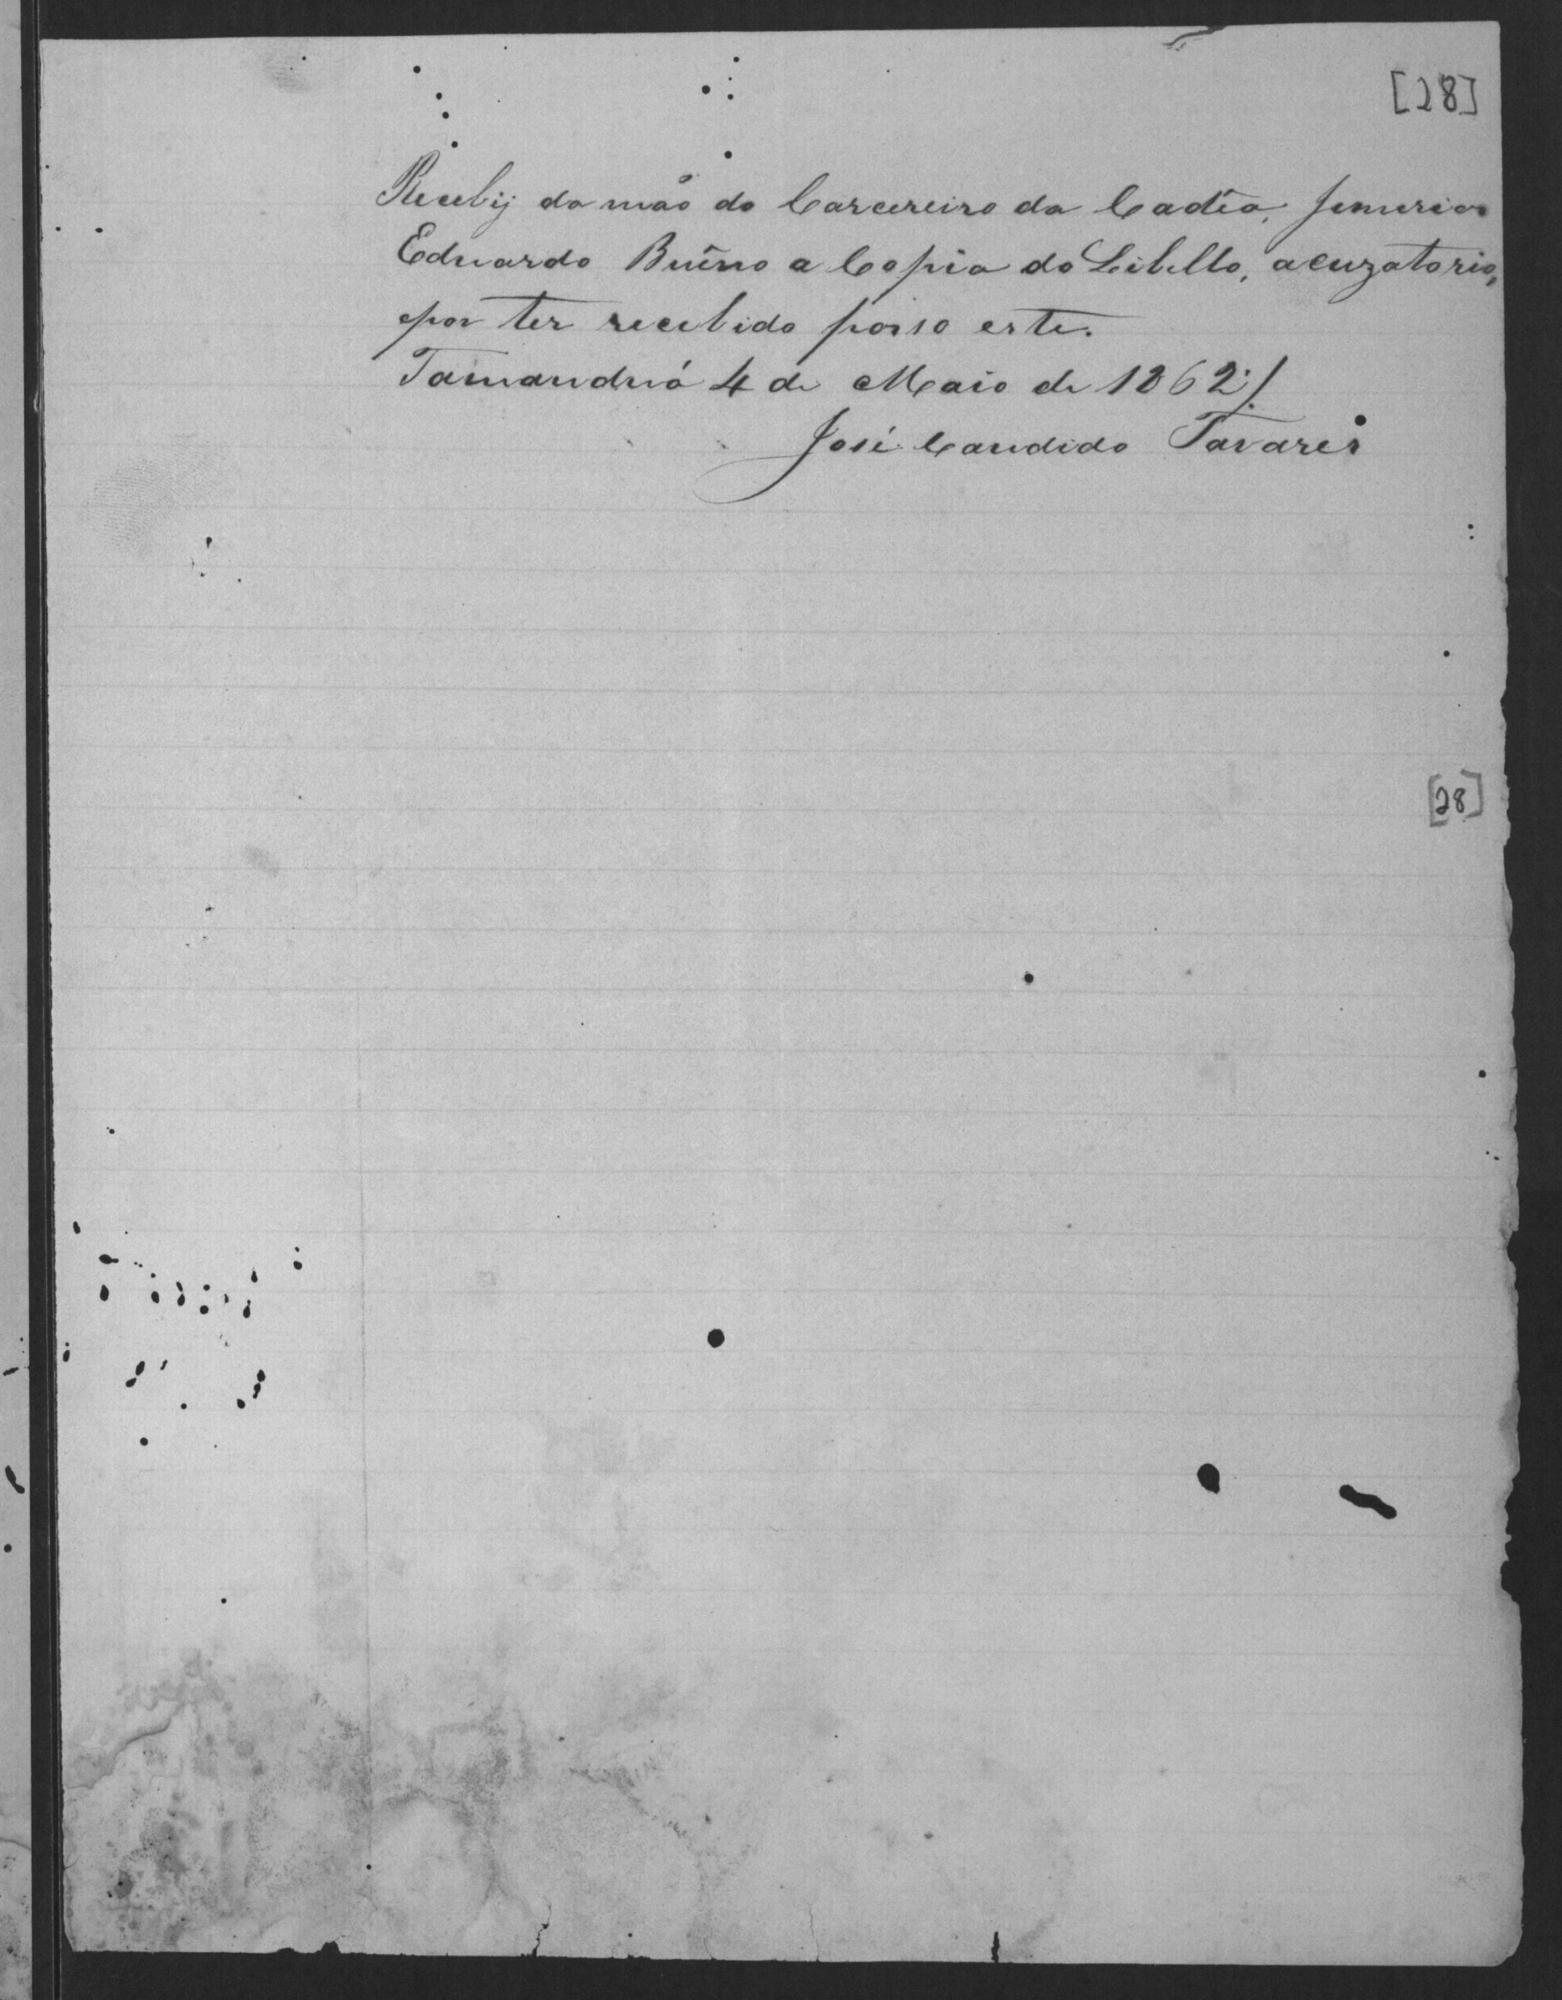 [28]
Recebij da mão do Carcereiro da Cadêa,
Eduardo Buêno a Copia do Libello, acuzatorio,
epor ter recebido pasço este.
Tamanduá 4 de Maio de 1862
José Candido Tavares
[28]